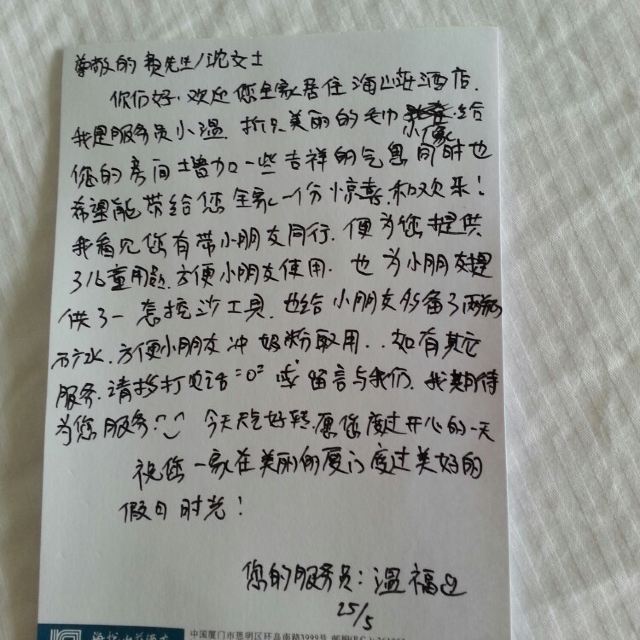 尊敬的 黄先生/沈女士
你们好,欢迎您全家居住海悦酒店.
我是服务员小温 折只美丽的毛巾 小象 给
您的房间增加一些吉祥的气息同时也
希望能带给您全家一份惊喜,和欢乐!
我看见您有带小朋友同行.便为您提供
了儿童用品,方便小朋友使用.也为小朋友提
供了一套挖沙工具.也给小朋友多备了两瓶
矿水.方便小朋友冲奶粉取用..如有其它
服务.请拨打电话"0"或留言与我们.我期待
为您服务! 今天天气好转.愿您度过开心的一天
祝您一家在美丽的厦门度过美好的
假日时光!
您的服务员:温福
25/5
中国厦门市思明区环岛南路3999号